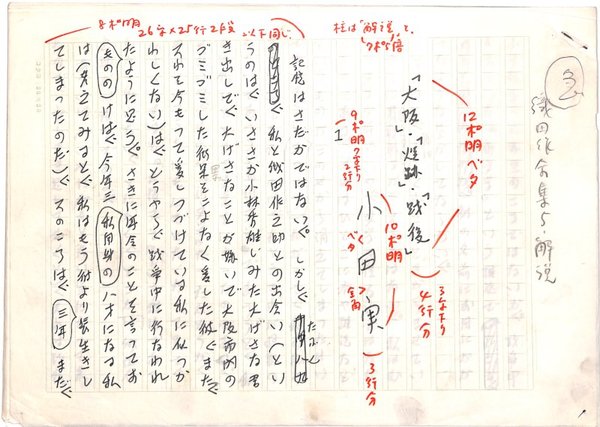 急
織田作全集5・解説
12ポ明ベタ
「大阪」・「焼跡」・「戦後」
3字下り
4行分
小田実
10ポ明
3行分
9ポ明
2行分
1
柱は「解説」と、
7ポ5倍
8ポ明
26字×25行2段
以下同じ
記憶はさだかではない。しかし、たぶん
私と織田作之助との出会い(とい
うのは、いささか小林秀雄じみた大げさな書
き出しで、大げさなことが嫌いで大阪市井の
ゴミゴミした街裏をこよなく愛した彼、また、
それを今もって愛しつづけている私に似つか
わしくない)は、どうやら、戦争中に行なわれ
たように思う。さきに年令のことを言ってお
けば、今年三八才になる私
は(考えてみると、私はもう彼より長生きし
てしまったのだ)、そのころは、三年、また、